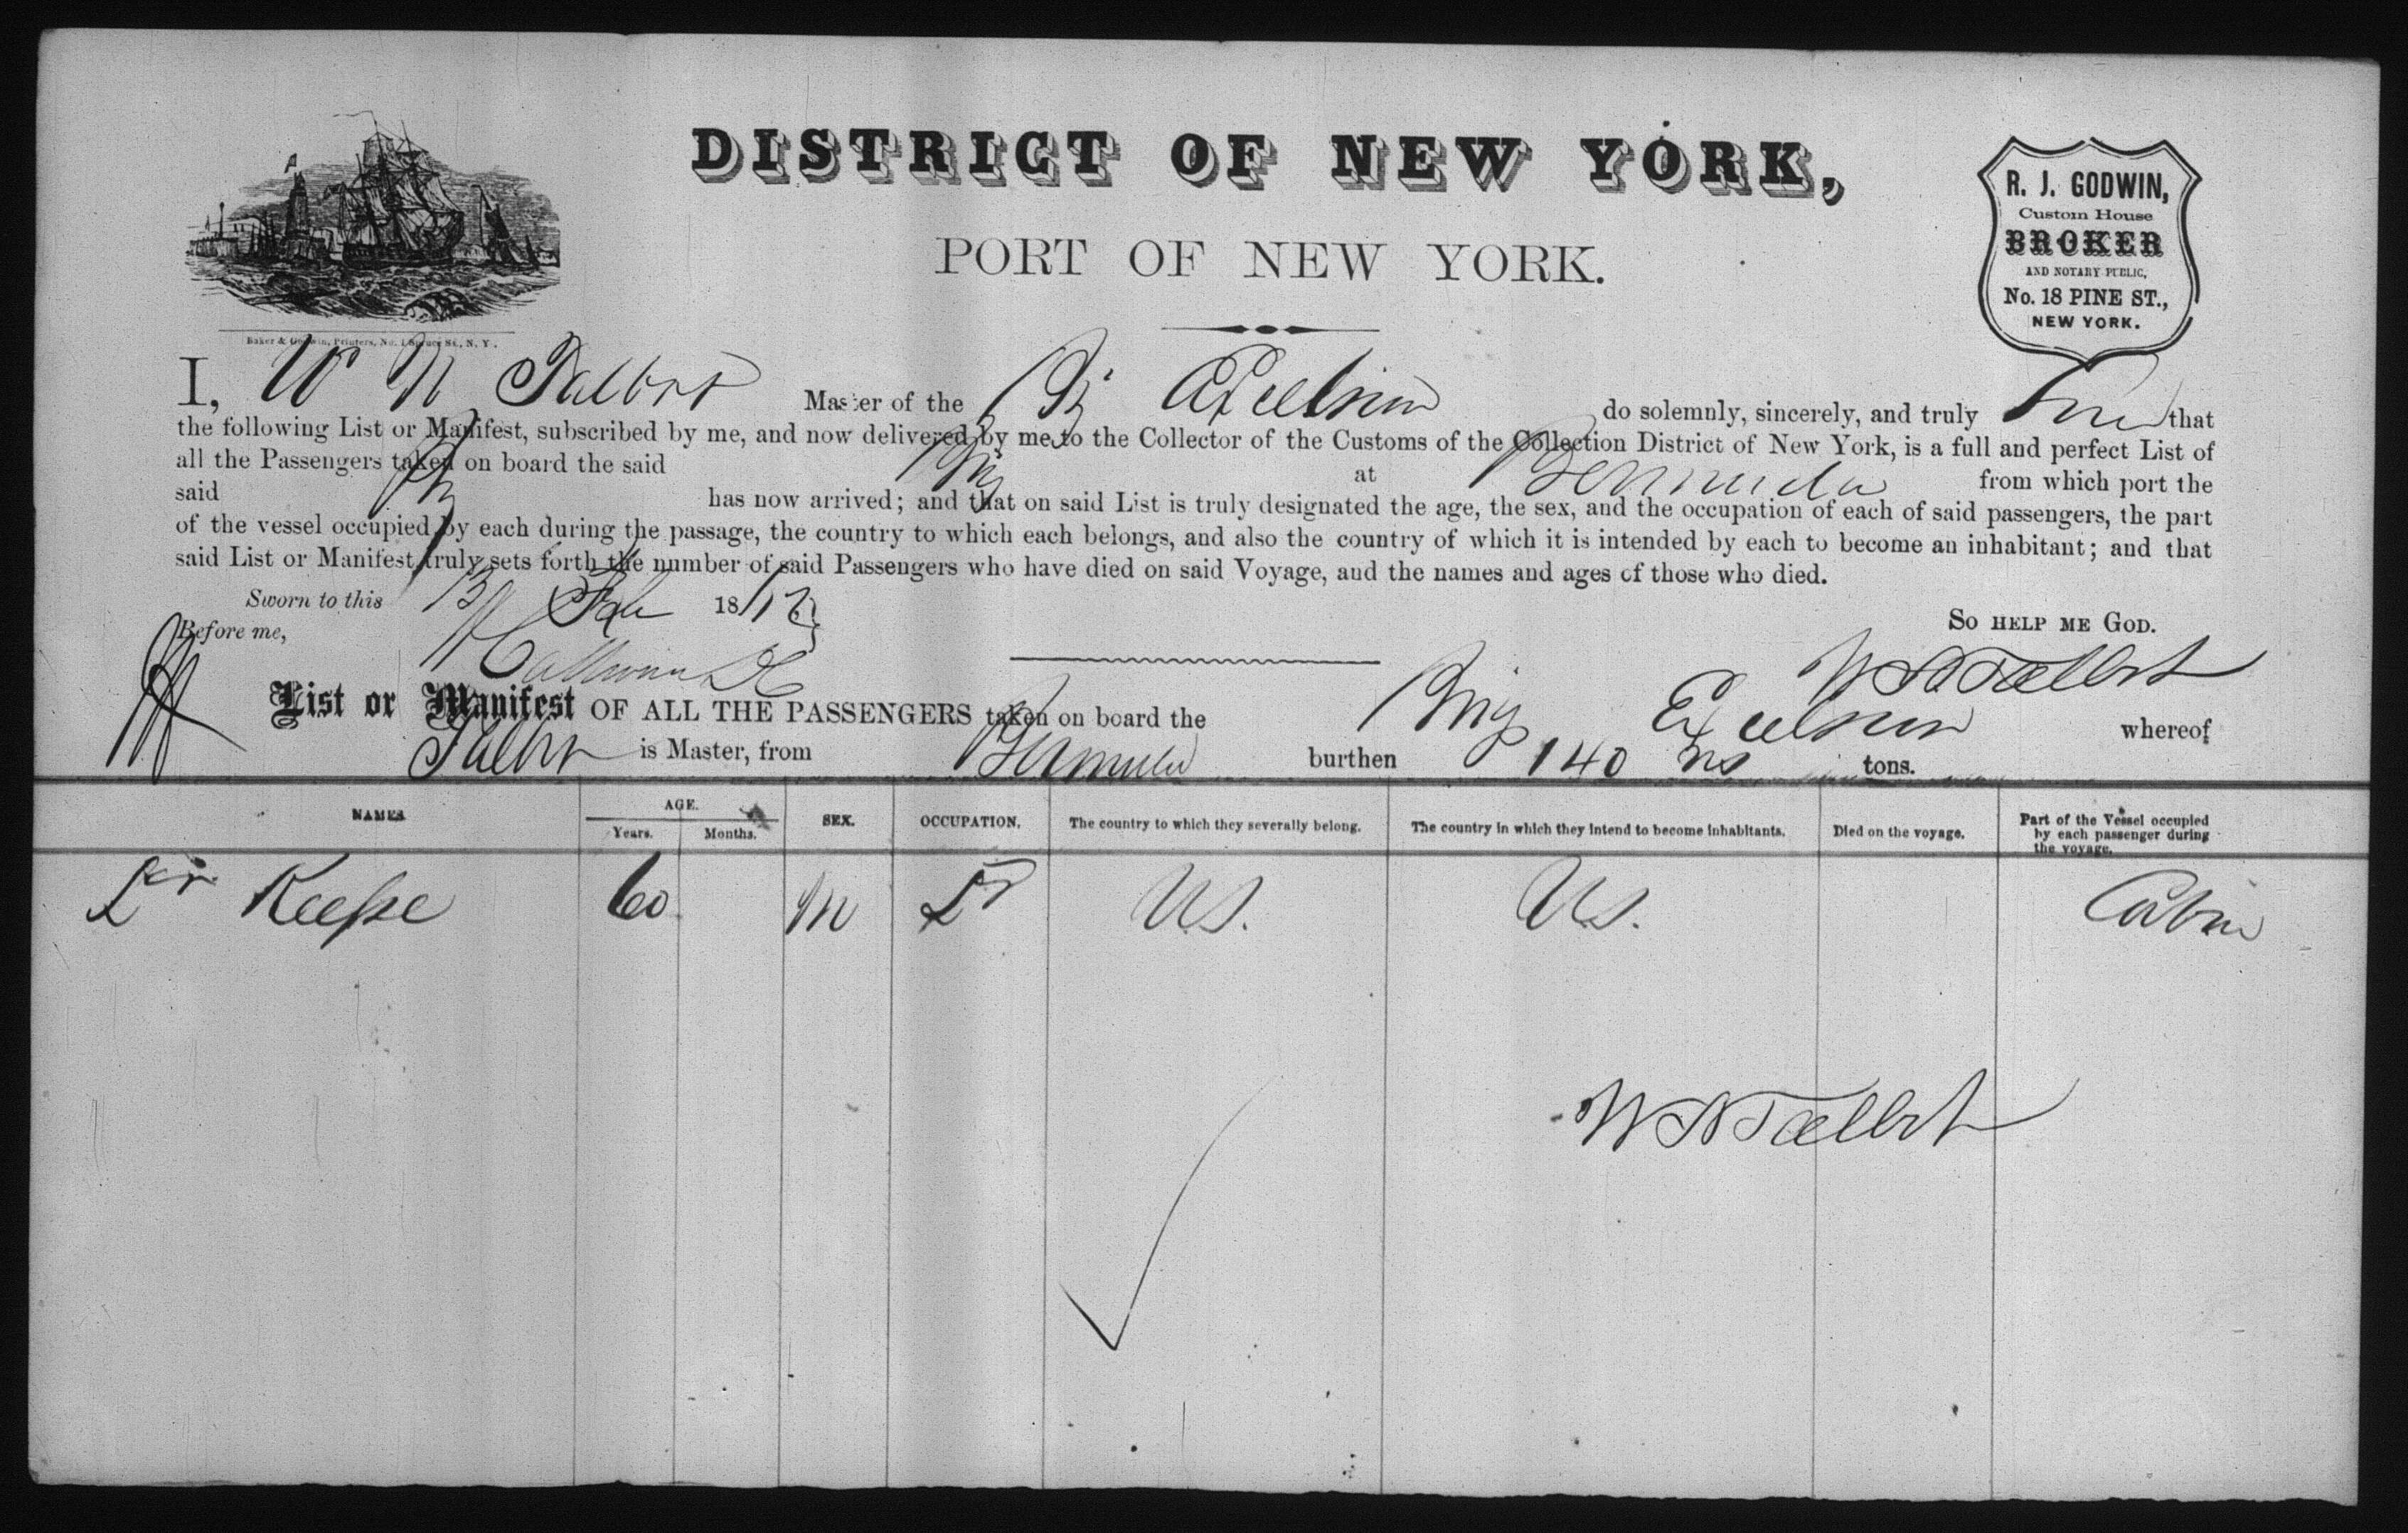 DISTRICT OF NEW YORK,
PORT OF NEW YORK.
R. J. GODWIN,
Custom House
BROKER
AND NOTARY PUBLIC,
No. 18 PINE ST.,
NEW YORK.
Baker & Godwin, Printers, No. 1 Spruce St., N. Y.
I, W N Talbot Master of the Brig Excelsior do solemnly, sincerely, and truly that
the following List or Manifest, subscribed by me, and now delivered by me to the Collector of the Customs of the Collection District of New York, is a full and perfect List of
all the Passengers taken on board the said Brig at Bermuda from which port the
said Brig has now arrived; and that on said List is truly designated the age, the sex, and the occupation of each of said passengers, the part
of the vessel occupied by each during the passage, the country to which each belongs, and also the country of which it is intended by each to become an inhabitant; and that
said List or Manifest truly sets forth the number of said Passengers who have died on said Voyage, and the names and ages of those who died.
Sworn to this 13 Feb 18
Before me,
SO HELP ME GOD.
W N Talbot
List or Manifest OF ALL THE PASSENGERS taken on board the Brig Excelsior whereof
Talbot is Master, from Bermuda burthen 140 tons.
NAMES AGE. SEX. OCCUPATION. The country to which they severally belong. The country in which they intend to become inhabitants. Died on the voyage. Part of the Vessel occupied by each passenger during the voyage.
Years. Months.
Dr Keese 60 M Dr U.S. U.S. Cabin
W N Talbot